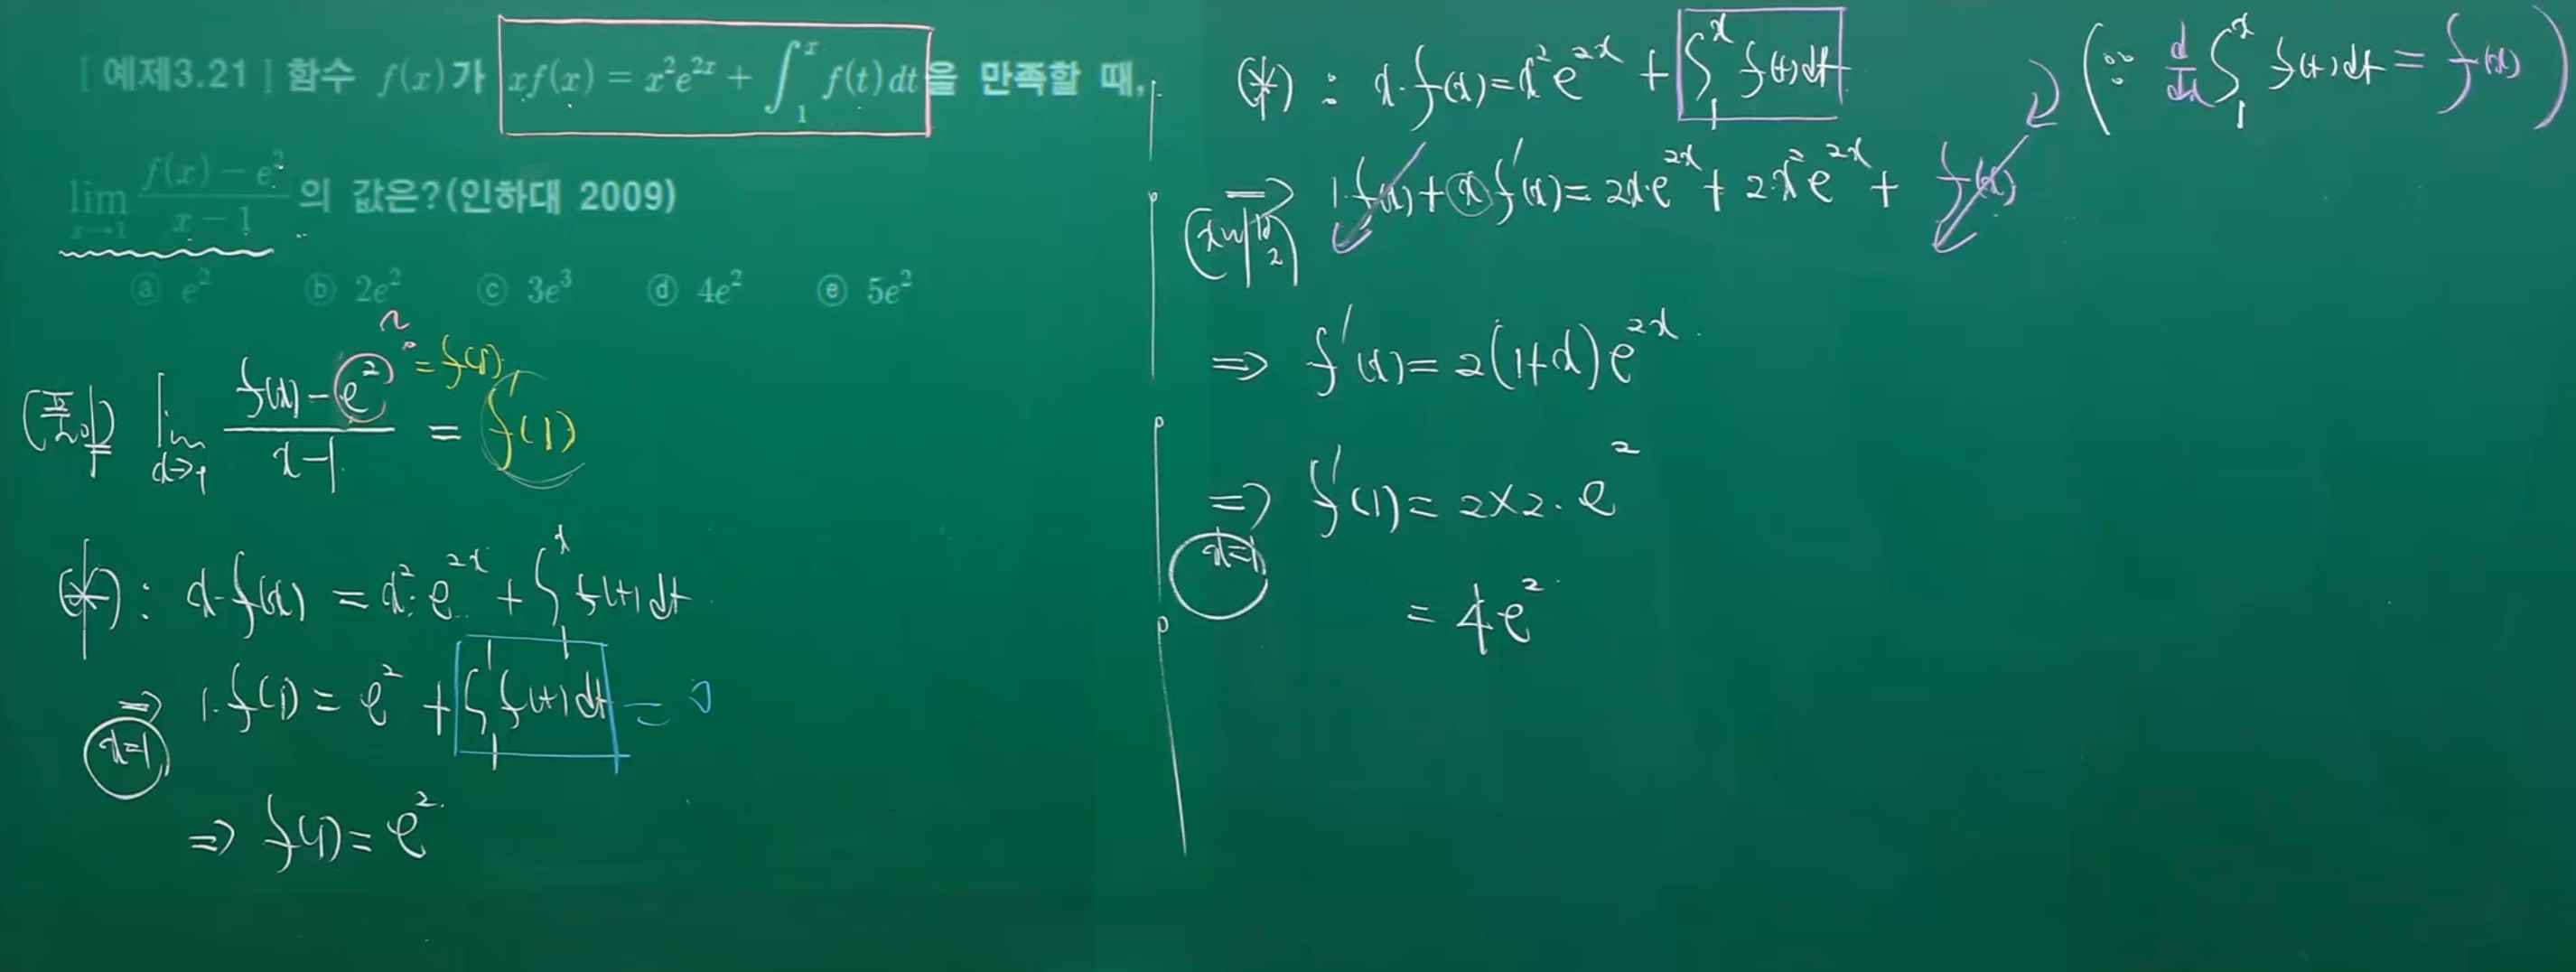 [ 예제3.21 ] 함수 f(x)가 xf(x) = x²e^{2x} + ∫_1^x f(t) dt 을 만족할 때,
lim_{x→1} (f(x) − e²)/(x − 1) 의 값은?(인하대 2009)
ⓐ e² ⓑ 2e² ⓒ 3e³ ⓓ 4e² ⓔ 5e²
(풀이) lim_{x→1} (f(x) − e²)/(x − 1) = f'(1)
= f(1)
(*) : x·f(x) = x²·e^{2x} + ∫_1^x f(t) dt
⇒ 1·f(1) = e² + ∫_1^1 f(t) dt = 0
x=1
⇒ f(1) = e²
(*) : x·f(x) = x²e^{2x} + ∫_1^x f(t) dt
(∵ d/dx ∫_1^x f(t) dt = f(x))
⇒ 1·f(x) + x f'(x) = 2x·e^{2x} + 2·x²e^{2x} + f(x)
⇒ f'(x) = 2(1+x)e^{2x}
⇒ f'(1) = 2×2·e²
x=1
= 4e²